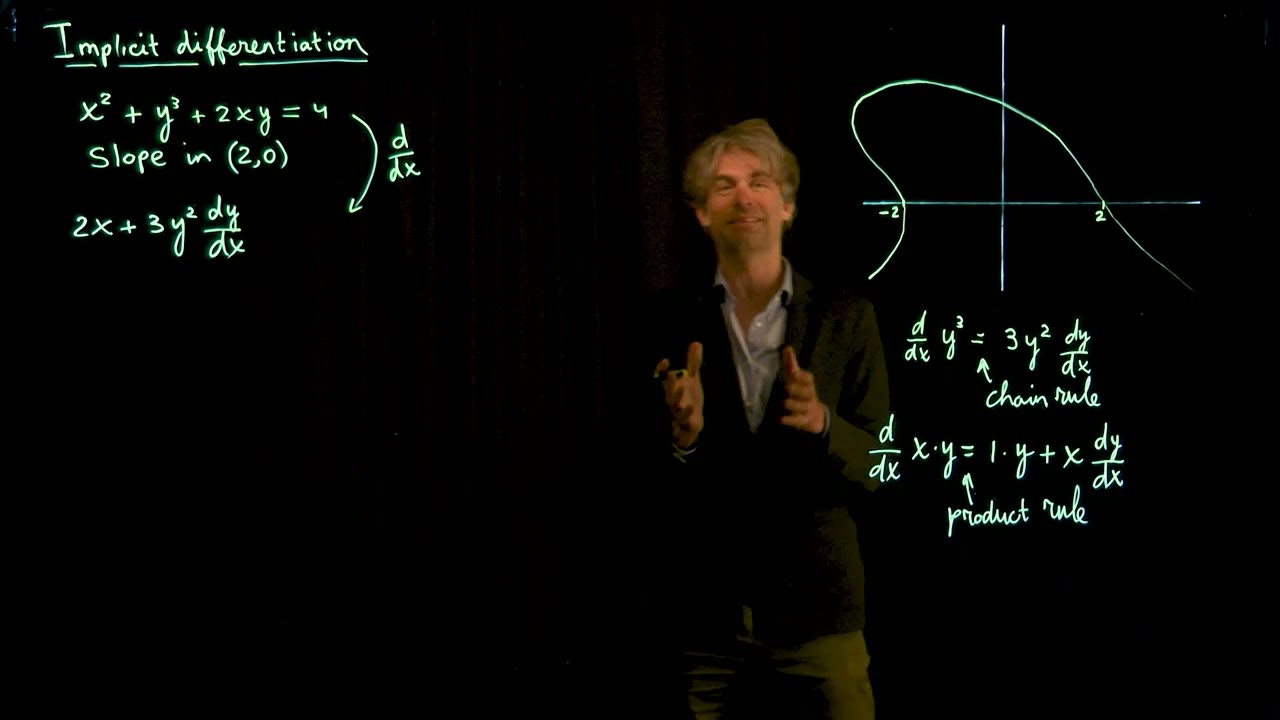 Implicit differentiation
x² + y³ + 2xy = 4
Slope in (2,0)
d/dx
2x + 3y² dy/dx
-2
2
d/dx y³ = 3y² dy/dx
chain rule
d/dx x·y = 1·y + x dy/dx
product rule